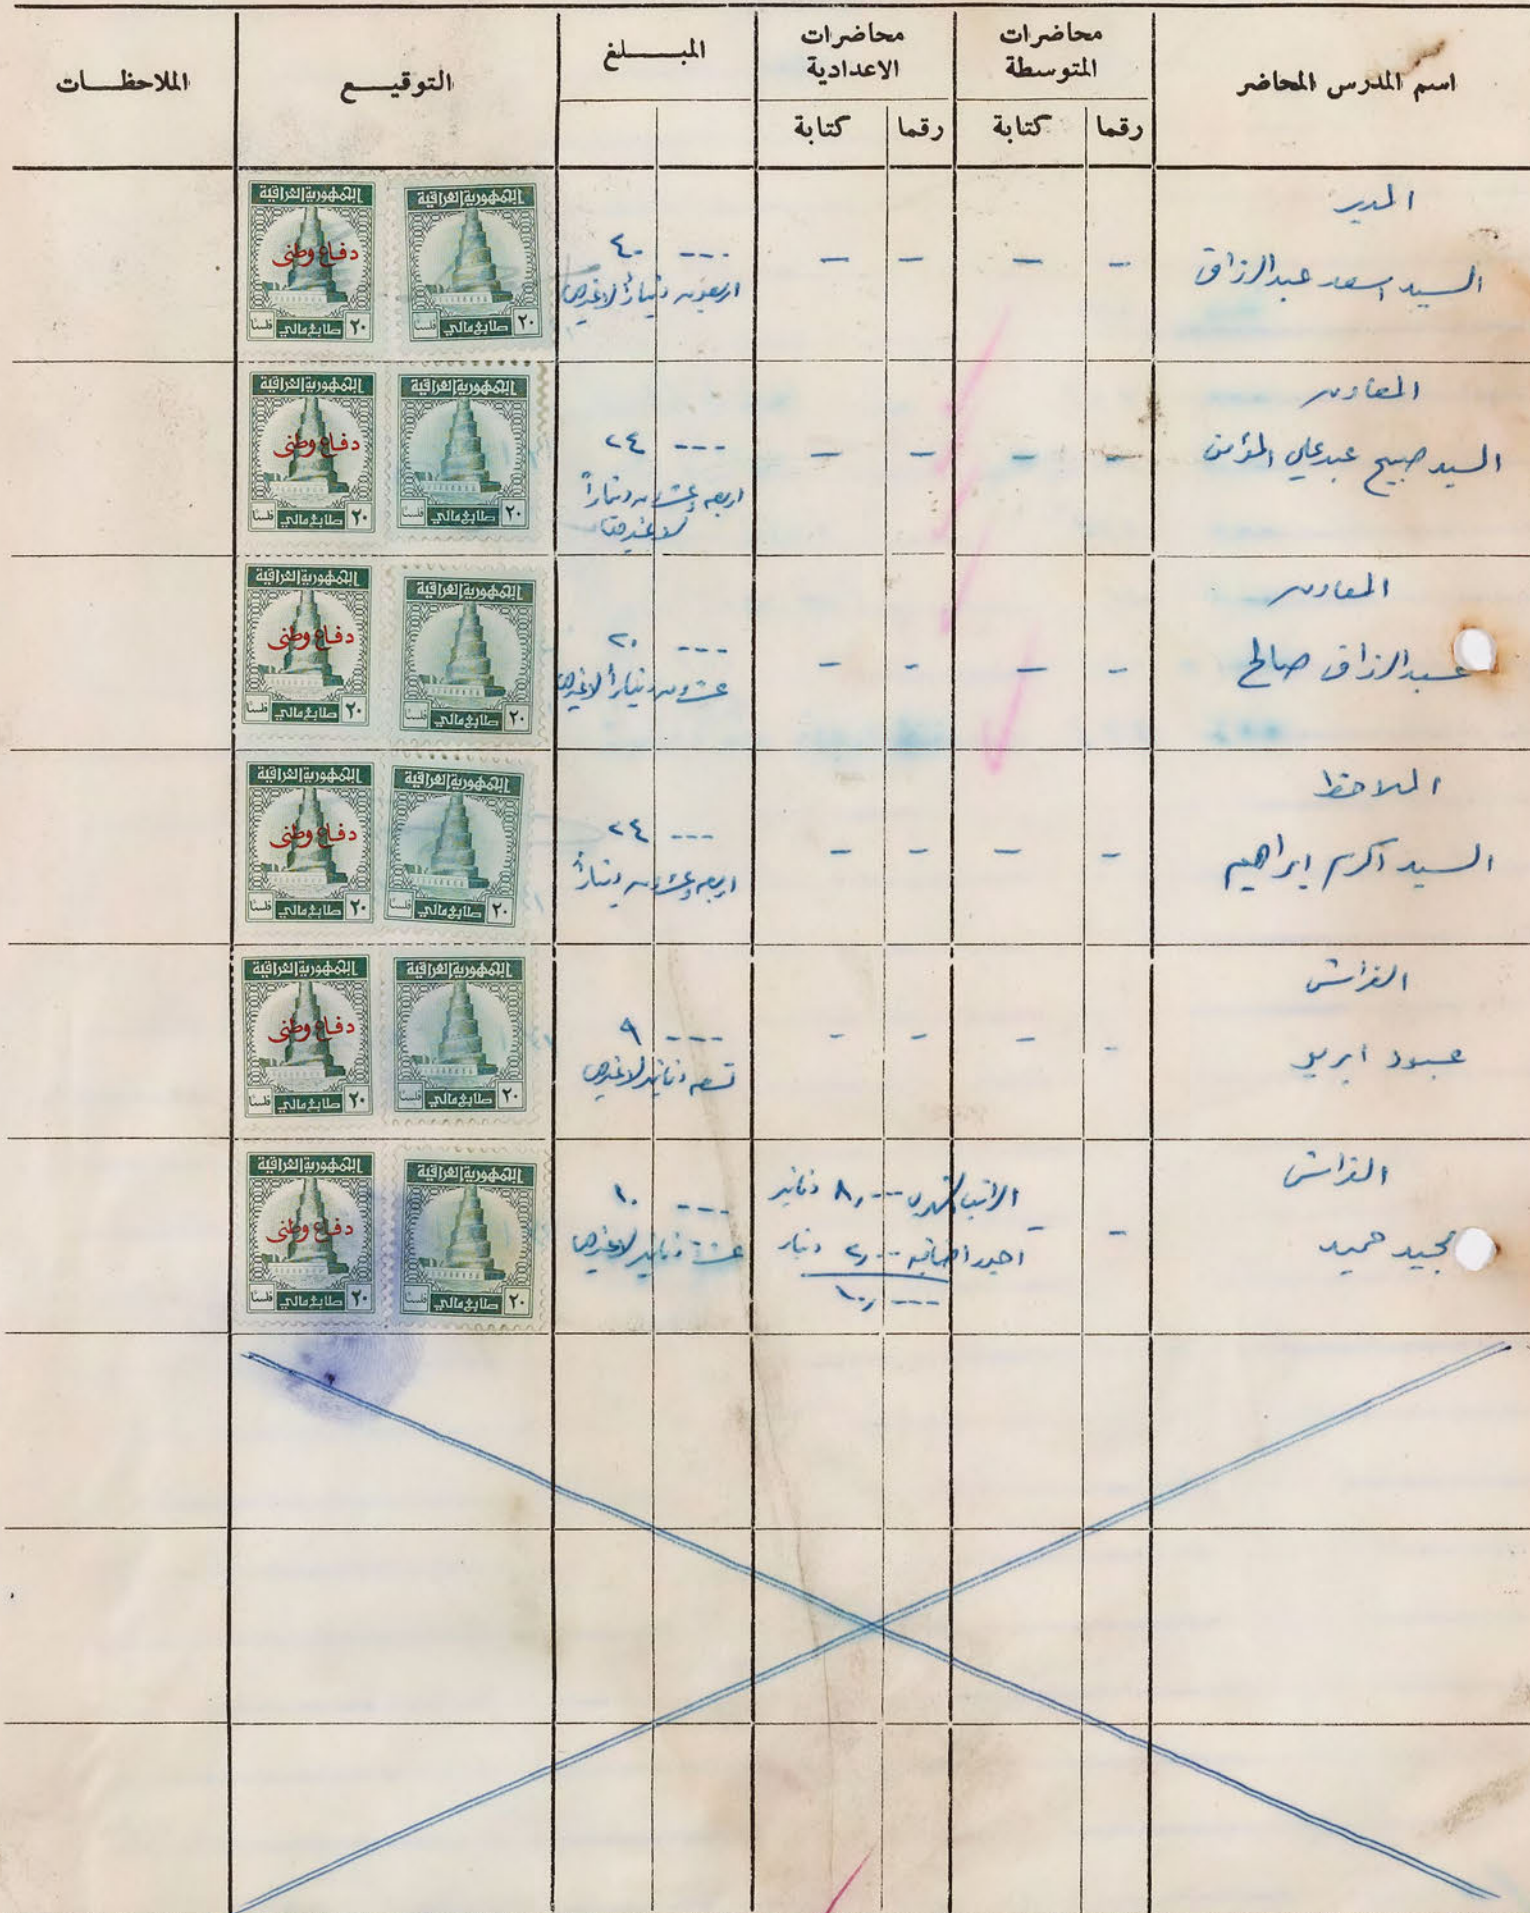 اسم المدرس المحاضر
محاضرات
المتوسطة
رقما
كتابة
محاضرات
الاعدادية
رقما
كتابة
المبلغ
التوقيع
الملاحظات
المدير
السيد اسعد عبدالرزاق
- - - -
--- ٤٠
اربعون ديناراً لاغيرها
الجمهورية العراقية
٢٠ طابع مالي فلسًا
الجمهورية العراقية
دفاع وطني
٢٠ طابع مالي فلسًا
المعاون
السيد صبيح عبدعلي المؤمن
- - - -
--- ٢٤
اربعه وعشرون ديناراً
لاغيرها
الجمهورية العراقية
٢٠ طابع مالي فلسًا
الجمهورية العراقية
دفاع وطني
٢٠ طابع مالي فلسًا
المعاون
عبدالرزاق صالح
- - - -
--- ٢٠
عشرون ديناراً لاغيرها
الجمهورية العراقية
٢٠ طابع مالي فلسًا
الجمهورية العراقية
دفاع وطني
٢٠ طابع مالي فلسًا
الملاحظ
السيد اكرم ابراهيم
- - - -
--- ٢٤
اربعه وعشرون ديناراً
الجمهورية العراقية
٢٠ طابع مالي فلسًا
الجمهورية العراقية
دفاع وطني
٢٠ طابع مالي فلسًا
الفراش
عبود
- - - -
--- ٩
تسعه دنانير لاغيرها
الجمهورية العراقية
٢٠ طابع مالي فلسًا
الجمهورية العراقية
دفاع وطني
٢٠ طابع مالي فلسًا
الفراش
مجيد حميد
- -
الراتب الشهري ٨,--- دنانير
اجور اضافيه ٢,--- دينار
١٠,---
--- ١٠
عشرة دنانير لاغيرها
الجمهورية العراقية
٢٠ طابع مالي فلسًا
الجمهورية العراقية
دفاع وطني
٢٠ طابع مالي فلسًا